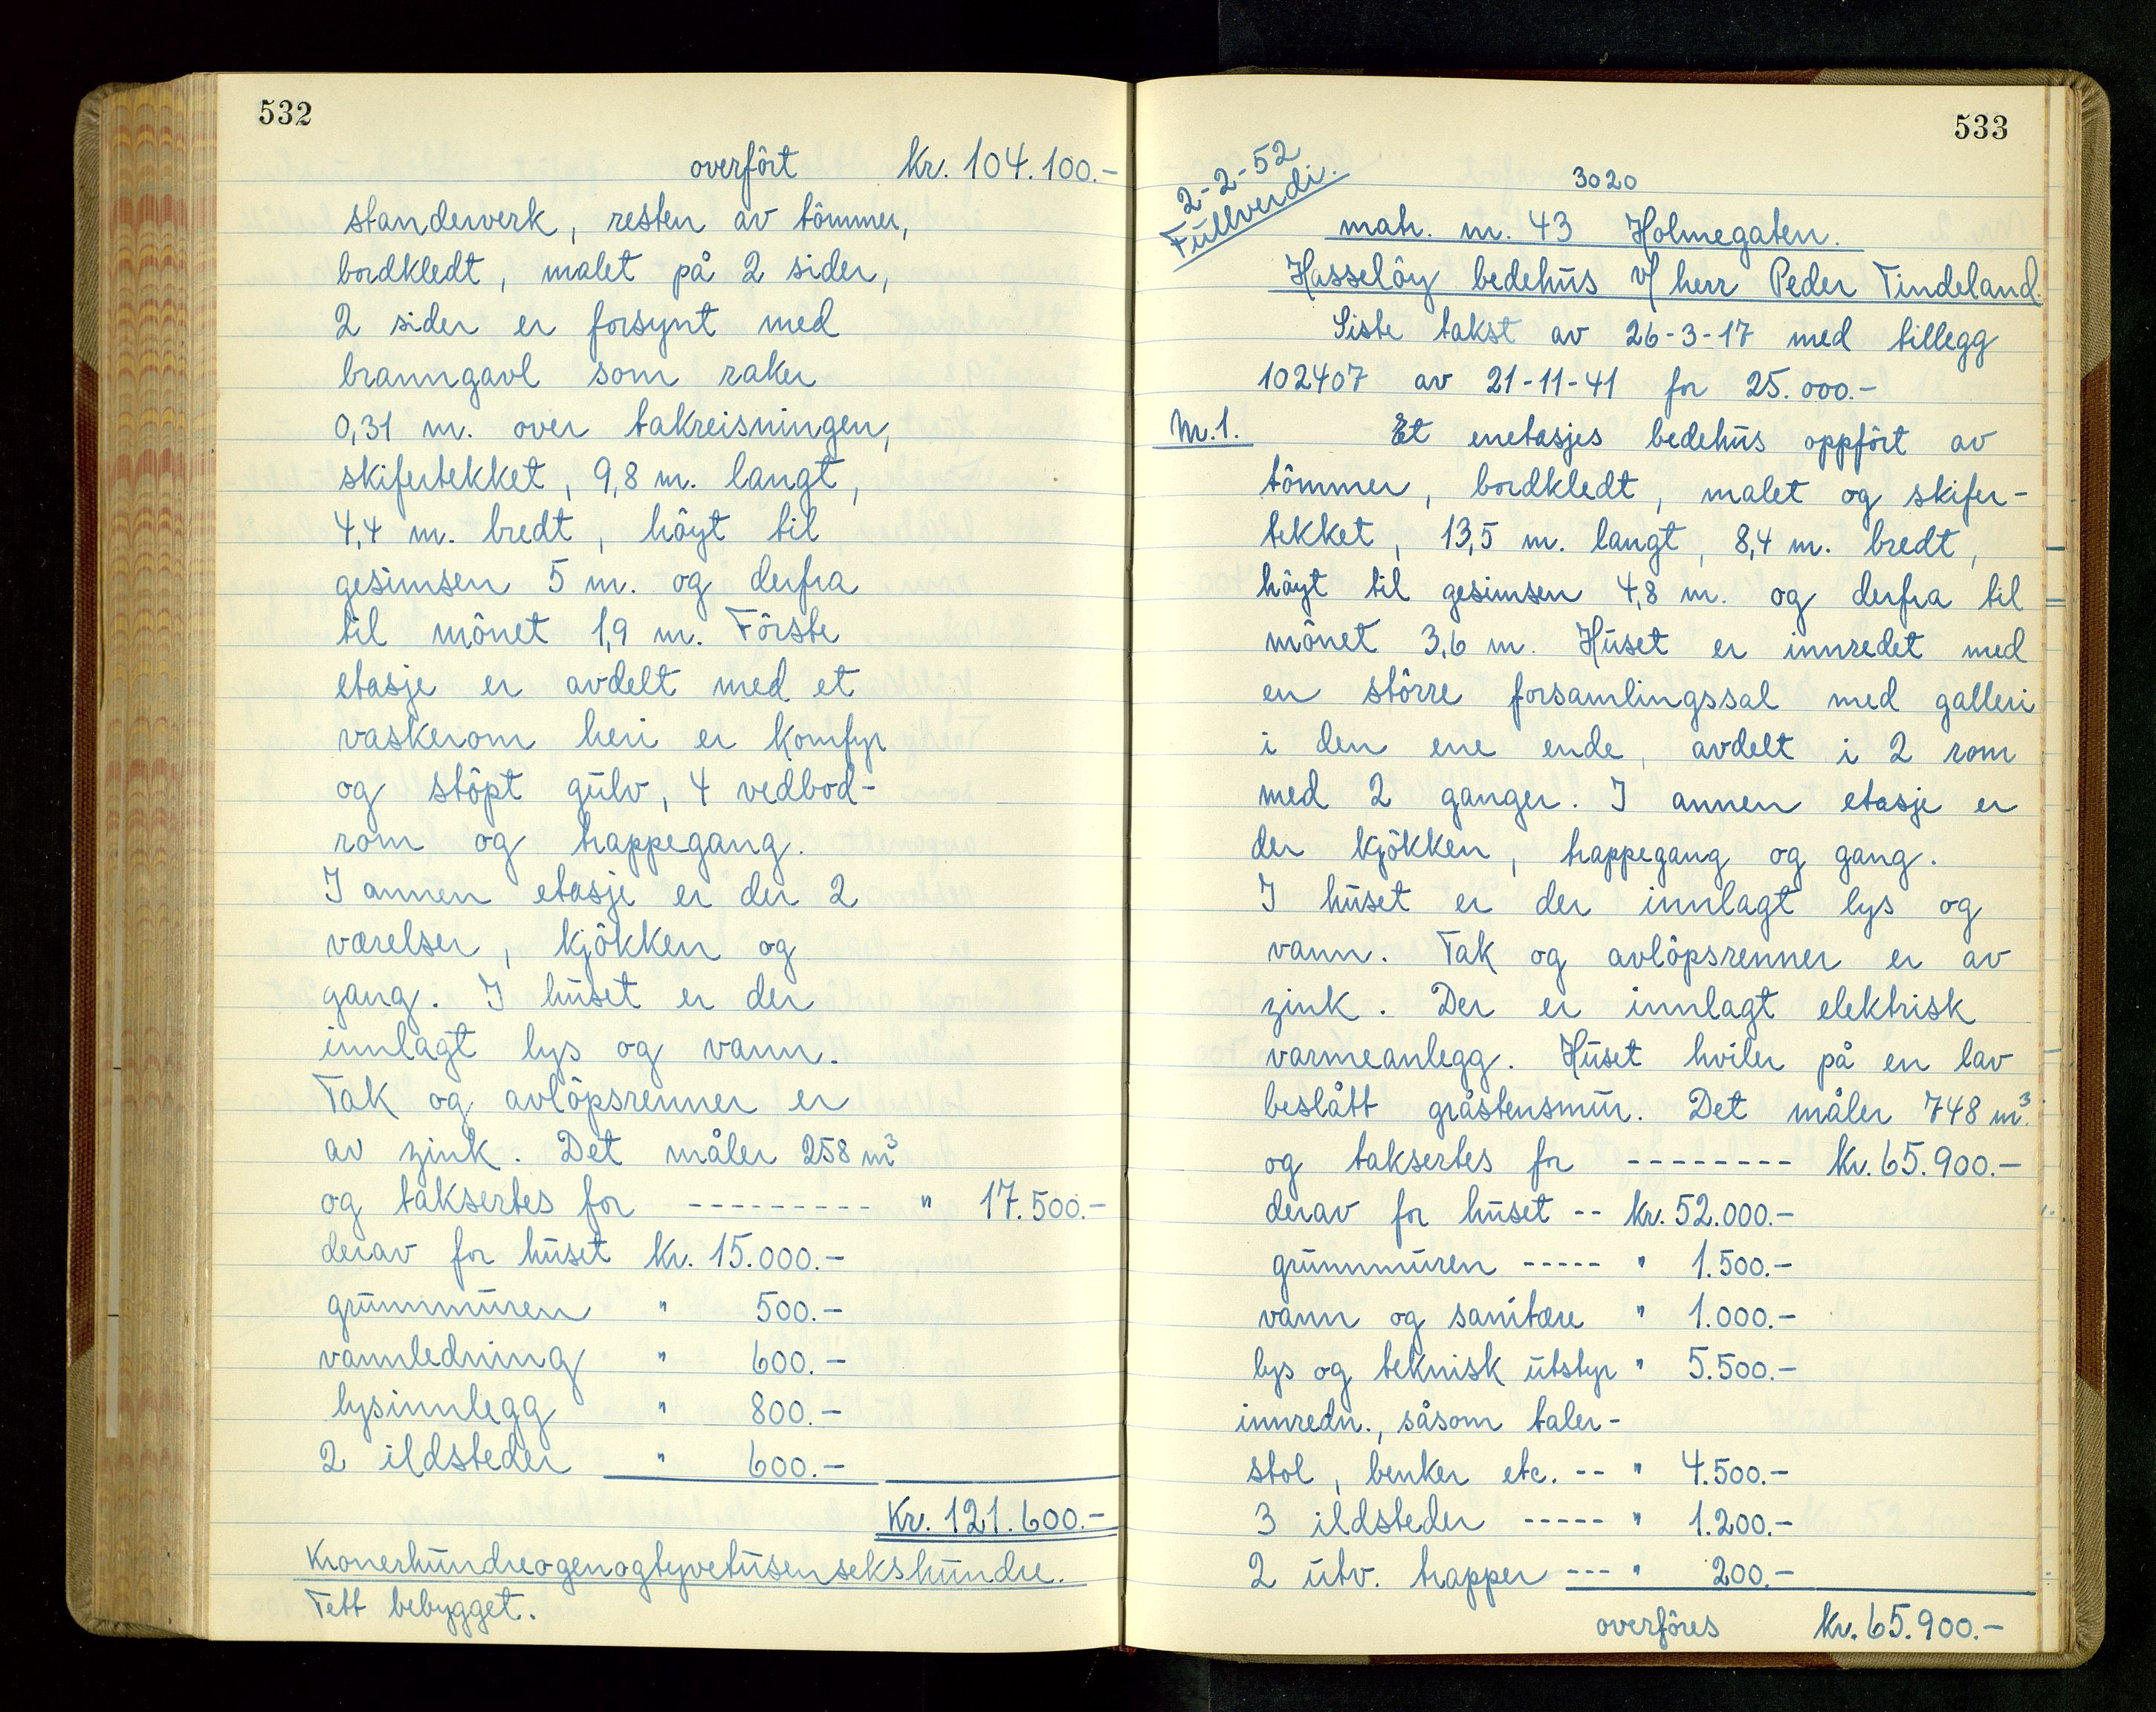 532
overført Kr. 104.100.-
standerverk, resten av tømmer,
bordkledt, malet på 2 sider,
2 sider er forsynt med
branngavl som raker
0,31 m. over takreisningen,
skifertekket, 9,8 m. langt,
4,4 m. bredt, høyt til
gesimsen 5 m. og derfra
til mønet 1,9 m. Første
etasje er avdelt med et
vaskerom heri er komfyr
og støpt gulv, 4 vedbod-
rom og trappegang.
I annen etasje er der 2
værelser, kjøkken og
gang. I huset er der
innlagt lys og vann.
Tak og avløpsrenner er
av zink. Det måler 258 m³
og taksertes for --------- " 17.500.-
derav for huset Kr. 15.000.-
grunnmuren " 500.-
vannledning " 600.-
lysinnlegg " 800.-
2 ildsteder " 600.-
Kr. 121.600.-
Kronerhundreogenogtyvetusensekshundre.
Tett bebygget.
533
2-2-52
Fullverdi.
3020
matr. nr. 43 Holmegaten.
Hasseløy bedehus v/ herr Peder Tindeland
Siste takst av 26-3-17 med tillegg
102407 av 21-11-41 for 25.000.-
Nr. 1. Et enetasjes bedehus oppført av
tømmer, bordkledt, malet og skifer-
tekket, 13,5 m. langt, 8,4 m. bredt,
høyt til gesimsen 4,8 m. og derfra til
mønet 3,6 m. Huset er innredet med
en større forsamlingssal med galleri
i den ene ende, avdelt i 2 rom
med 2 ganger. I annen etasje er
der kjøkken, trappegang og gang.
I huset er der innlagt lys og
vann. Tak og avløpsrenner er av
zink. Der er innlagt elektrisk
varmeanlegg. Huset hviler på en lav
beslått gråstensmur. Det måler 748 m³.
og taksertes for -------- Kr. 65.900.-
derav for huset -- Kr. 52.000.-
grunnmuren ----- " 1.500.-
vann og sanitære " 1.000.-
lys og teknisk utstyr " 5.500.-
innredn., såsom taler-
stol, benker etc. -- " 4.500.-
3 ildsteder ----- " 1.200.-
2 utv. trapper --- " 200.-
overføres Kr. 65.900.-